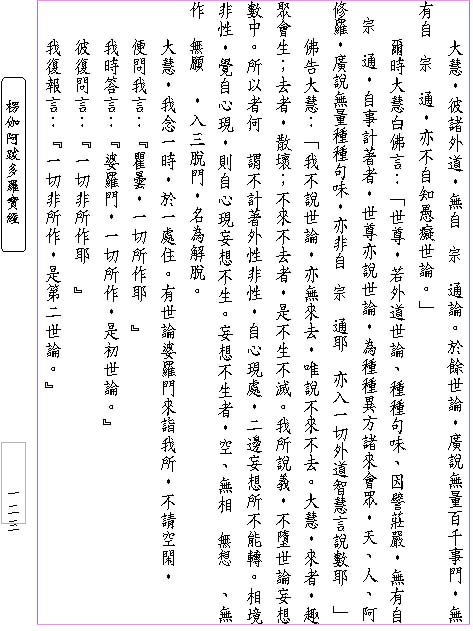 大慧，彼諸外道，無自　宗　通論。於餘世論，廣說無量百千事門，無
有自　宗　通，亦不自知愚癡世論。」
爾時大慧白佛言：「世尊，若外道世論、種種句味、因譬莊嚴，無有自
宗　通，自事計著者，世尊亦說世論，為種種異方諸來會眾，天、人、阿
修羅，廣說無量種種句味，亦非自　宗　通耶　亦入一切外道智慧言說數耶　」
佛告大慧：「我不說世論，亦無來去，唯說不來不去。大慧，來者，趣
聚會生；去者，散壞；不來不去者，是不生不滅。我所說義，不墮世論妄想
數中。所以者何　謂不計著外性非性，自心現處，二邊妄想所不能轉。相境
非性，覺自心現，則自心現妄想不生。妄想不生者，空、無相　無想　、無
作　無願　，入三脫門，名為解脫。
大慧，我念一時，於一處住。有世論婆羅門來詣我所，不請空閑，
便問我言：『瞿曇，一切所作耶　』
我時答言：『婆羅門，一切所作，是初世論。』
彼復問言：『一切非所作耶　』
我復報言：『一切非所作，是第二世論。』
楞伽阿跋多羅寶經
一二三